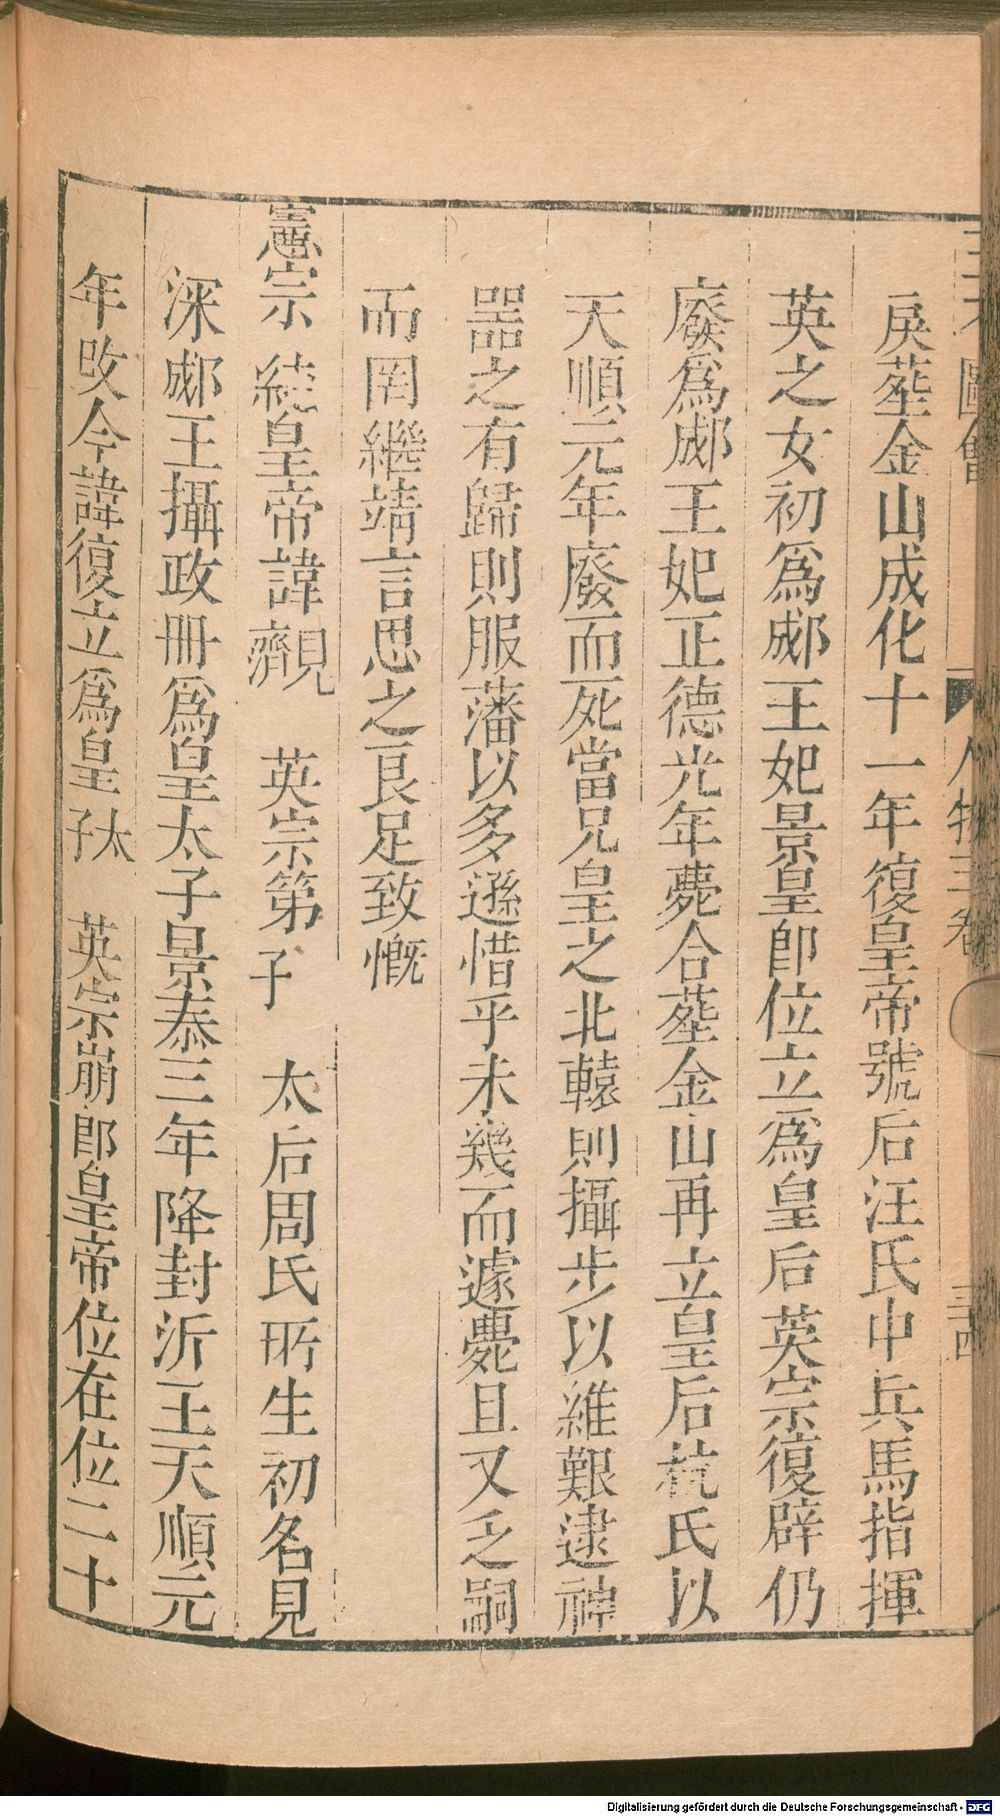 三才圖會 人物三卷 三四
戾塟金山成化十一年復皇帝號后汪氏中兵馬指揮
英之女初爲郕王妃景皇卽位立爲皇后英宗復辟仍
廢爲郕王妃正德元年薨合塟金山再立皇后杭氏以
天順元年廢而死當兄皇之北轅則攝步以維艱逮神
器之有歸則服藩以多遜惜乎未幾而遽薨且又乏嗣
而罔繼靖言思之良足致慨
憲宗純皇帝諱見濟 英宗第 子 太后周氏所生初名見
深郕王攝政冊爲皇太子景泰三年降封沂王天順元
年改今諱復立爲皇太子 英宗崩卽皇帝位在位二十
Digitalisierung gefördert durch die Deutsche Forschungsgemeinschaft - DFG